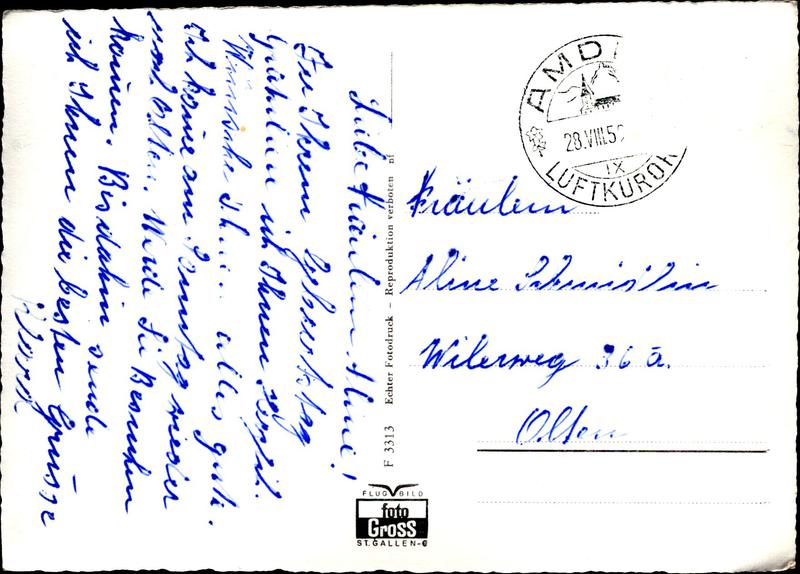 Liebe Fräulein Aline!
Zu Ihrem Geburtstag
Gratuliere ich Ihnen
Wünsche Ihnen alles gute.
Ich komme am Samstag wieder
nach Olten. Werde Sie Besuchen
kommen. Bis dahin sende
ich Ihnen die besten Grüsse
F 3313 Echter Fotodruck – Reproduktion verboten nf
FLUGBILD
foto
Gross
ST. GALLEN
AMD
28.VIII.5
IX
LUFTKUROR
Fräulein
Aline
Wilerweg 36 a.
Olten